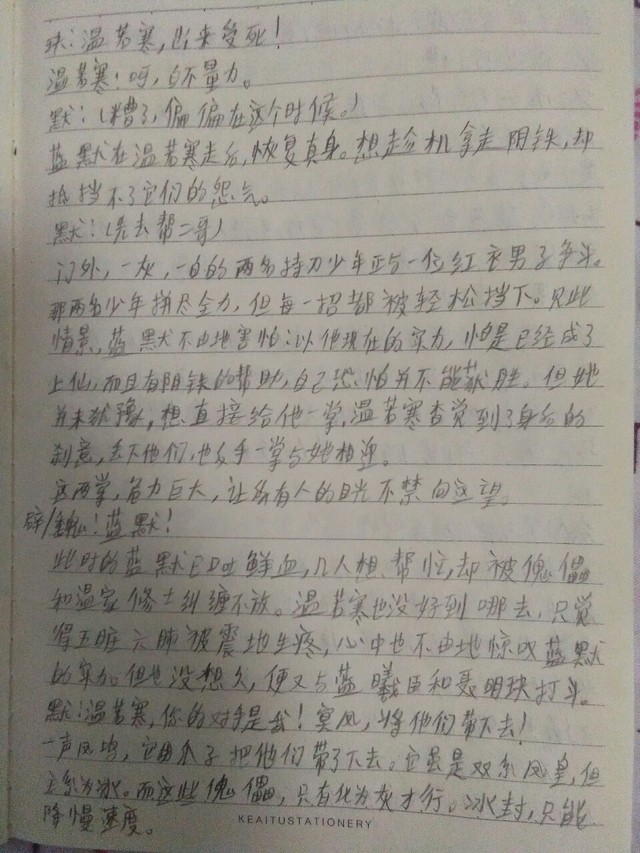 玦：温若寒，出来受死！
温若寒：呵，自不量力。
默：（糟了，偏偏在这个时候。）
蓝默在温若寒走后，恢复真身。想趁机拿走阴铁，却
抵挡不了它们的怨气。
默：（先去帮二哥）
门外，一灰，一白的两名持刀少年正与一位红衣男子争斗。
那两名少年拼尽全力，但每一招都被轻松挡下。见此
情景，蓝默不由地害怕：以他现在的实力，怕是已经成了
上仙，而且有阴铁的帮助，自己恐怕并不能获胜。但她
并未犹豫，想直接给他一掌，温若寒查觉到了身后的
刹意，丢下他们，也反手一掌与她相迎。
这两掌，危力巨大，让所有人的目光不禁向这望。
辟/魏：蓝默！
此时的蓝默已口吐鲜血，几人想帮忙，却被傀儡
和温家修士纠缠不放。温若寒也没好到哪去，只觉
得五脏六肺被震地生疼，心中也不由地惊叹蓝默
的实力。但也没想久，便又与蓝曦臣和聂明玦打斗。
默：温若寒，你的对手是我！冥凤，将他们带下去！
一声凤鸣，它由爪子把他们带了下去。它虽是双系凤皇，但
主系为冰。而这些傀儡，只有化为灰才行。冰封，只能
降慢速度。
KEAITUSTATIONERY